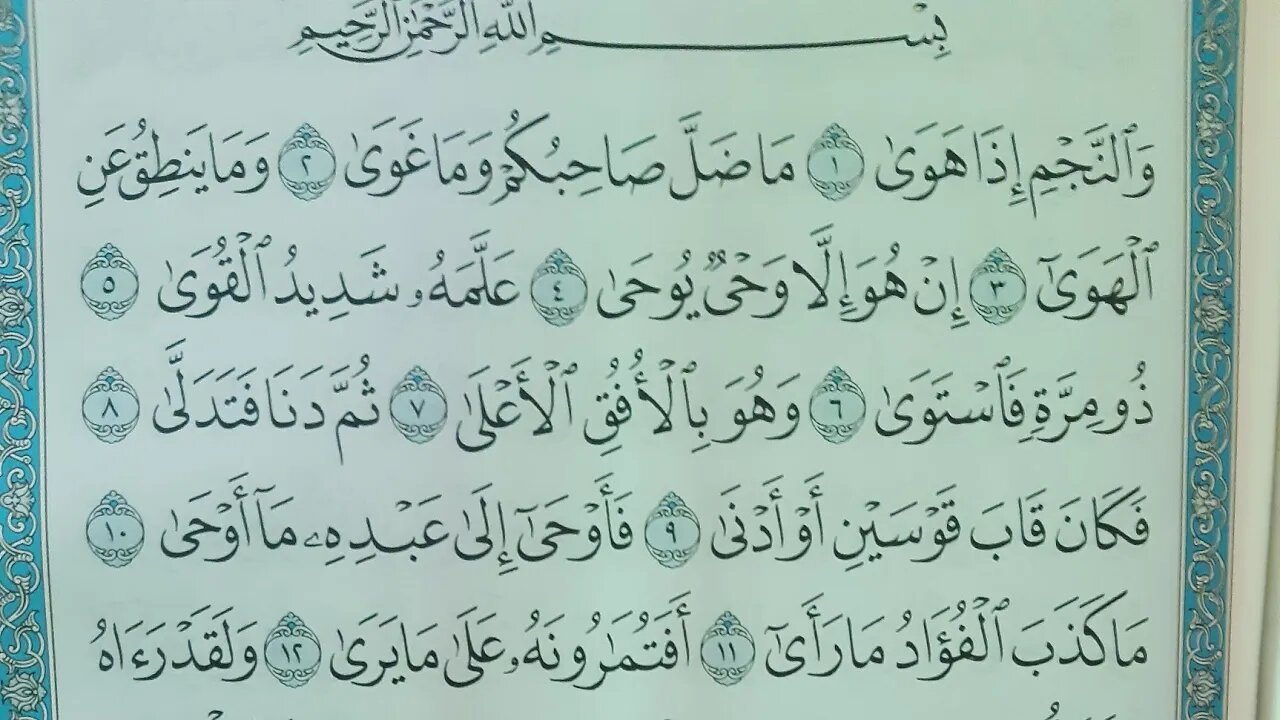 بِسْمِ ٱللَّهِ ٱلرَّحْمَٰنِ ٱلرَّحِيمِ
وَٱلنَّجْمِ إِذَا هَوَىٰ ١ مَا ضَلَّ صَاحِبُكُمْ وَمَا غَوَىٰ ٢ وَمَا يَنطِقُ عَنِ
ٱلْهَوَىٰٓ ٣ إِنْ هُوَ إِلَّا وَحْىٌ يُوحَىٰ ٤ عَلَّمَهُۥ شَدِيدُ ٱلْقُوَىٰ ٥
ذُو مِرَّةٍ فَٱسْتَوَىٰ ٦ وَهُوَ بِٱلْأُفُقِ ٱلْأَعْلَىٰ ٧ ثُمَّ دَنَا فَتَدَلَّىٰ ٨
فَكَانَ قَابَ قَوْسَيْنِ أَوْ أَدْنَىٰ ٩ فَأَوْحَىٰٓ إِلَىٰ عَبْدِهِۦ مَآ أَوْحَىٰ ١٠
مَا كَذَبَ ٱلْفُؤَادُ مَا رَأَىٰٓ ١١ أَفَتُمَٰرُونَهُۥ عَلَىٰ مَا يَرَىٰ ١٢ وَلَقَدْ رَءَاهُ